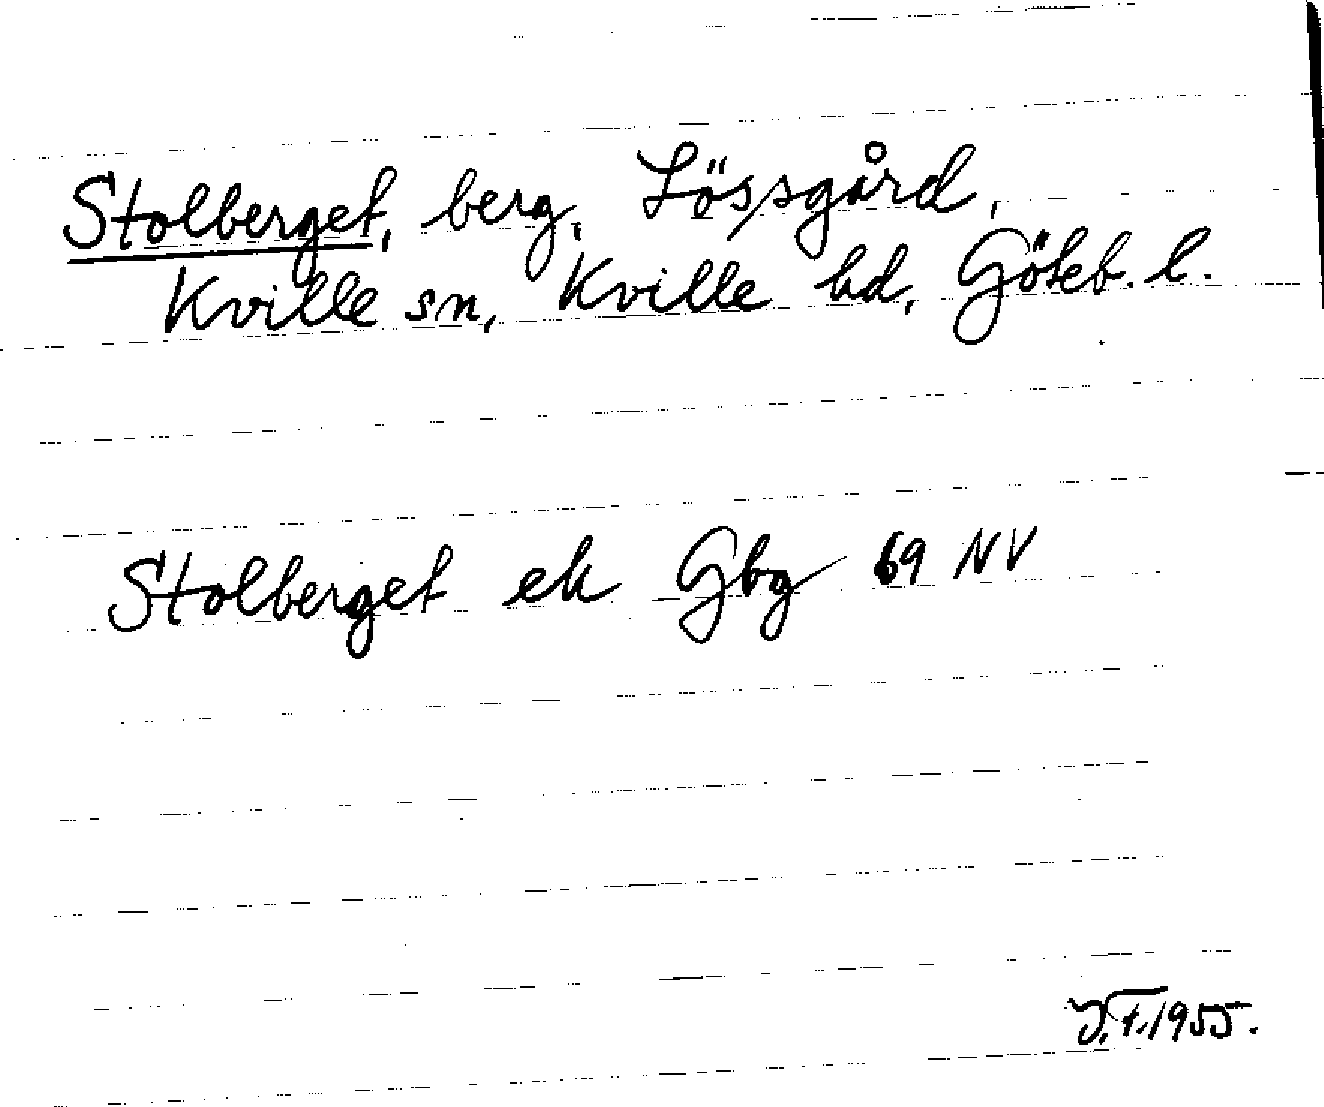 Stolberget, berg, Lössgård,
Kville sn, Kville hd, Göteb. l.
Stolberget ek Gbg 69 NV
J.F. 1955.